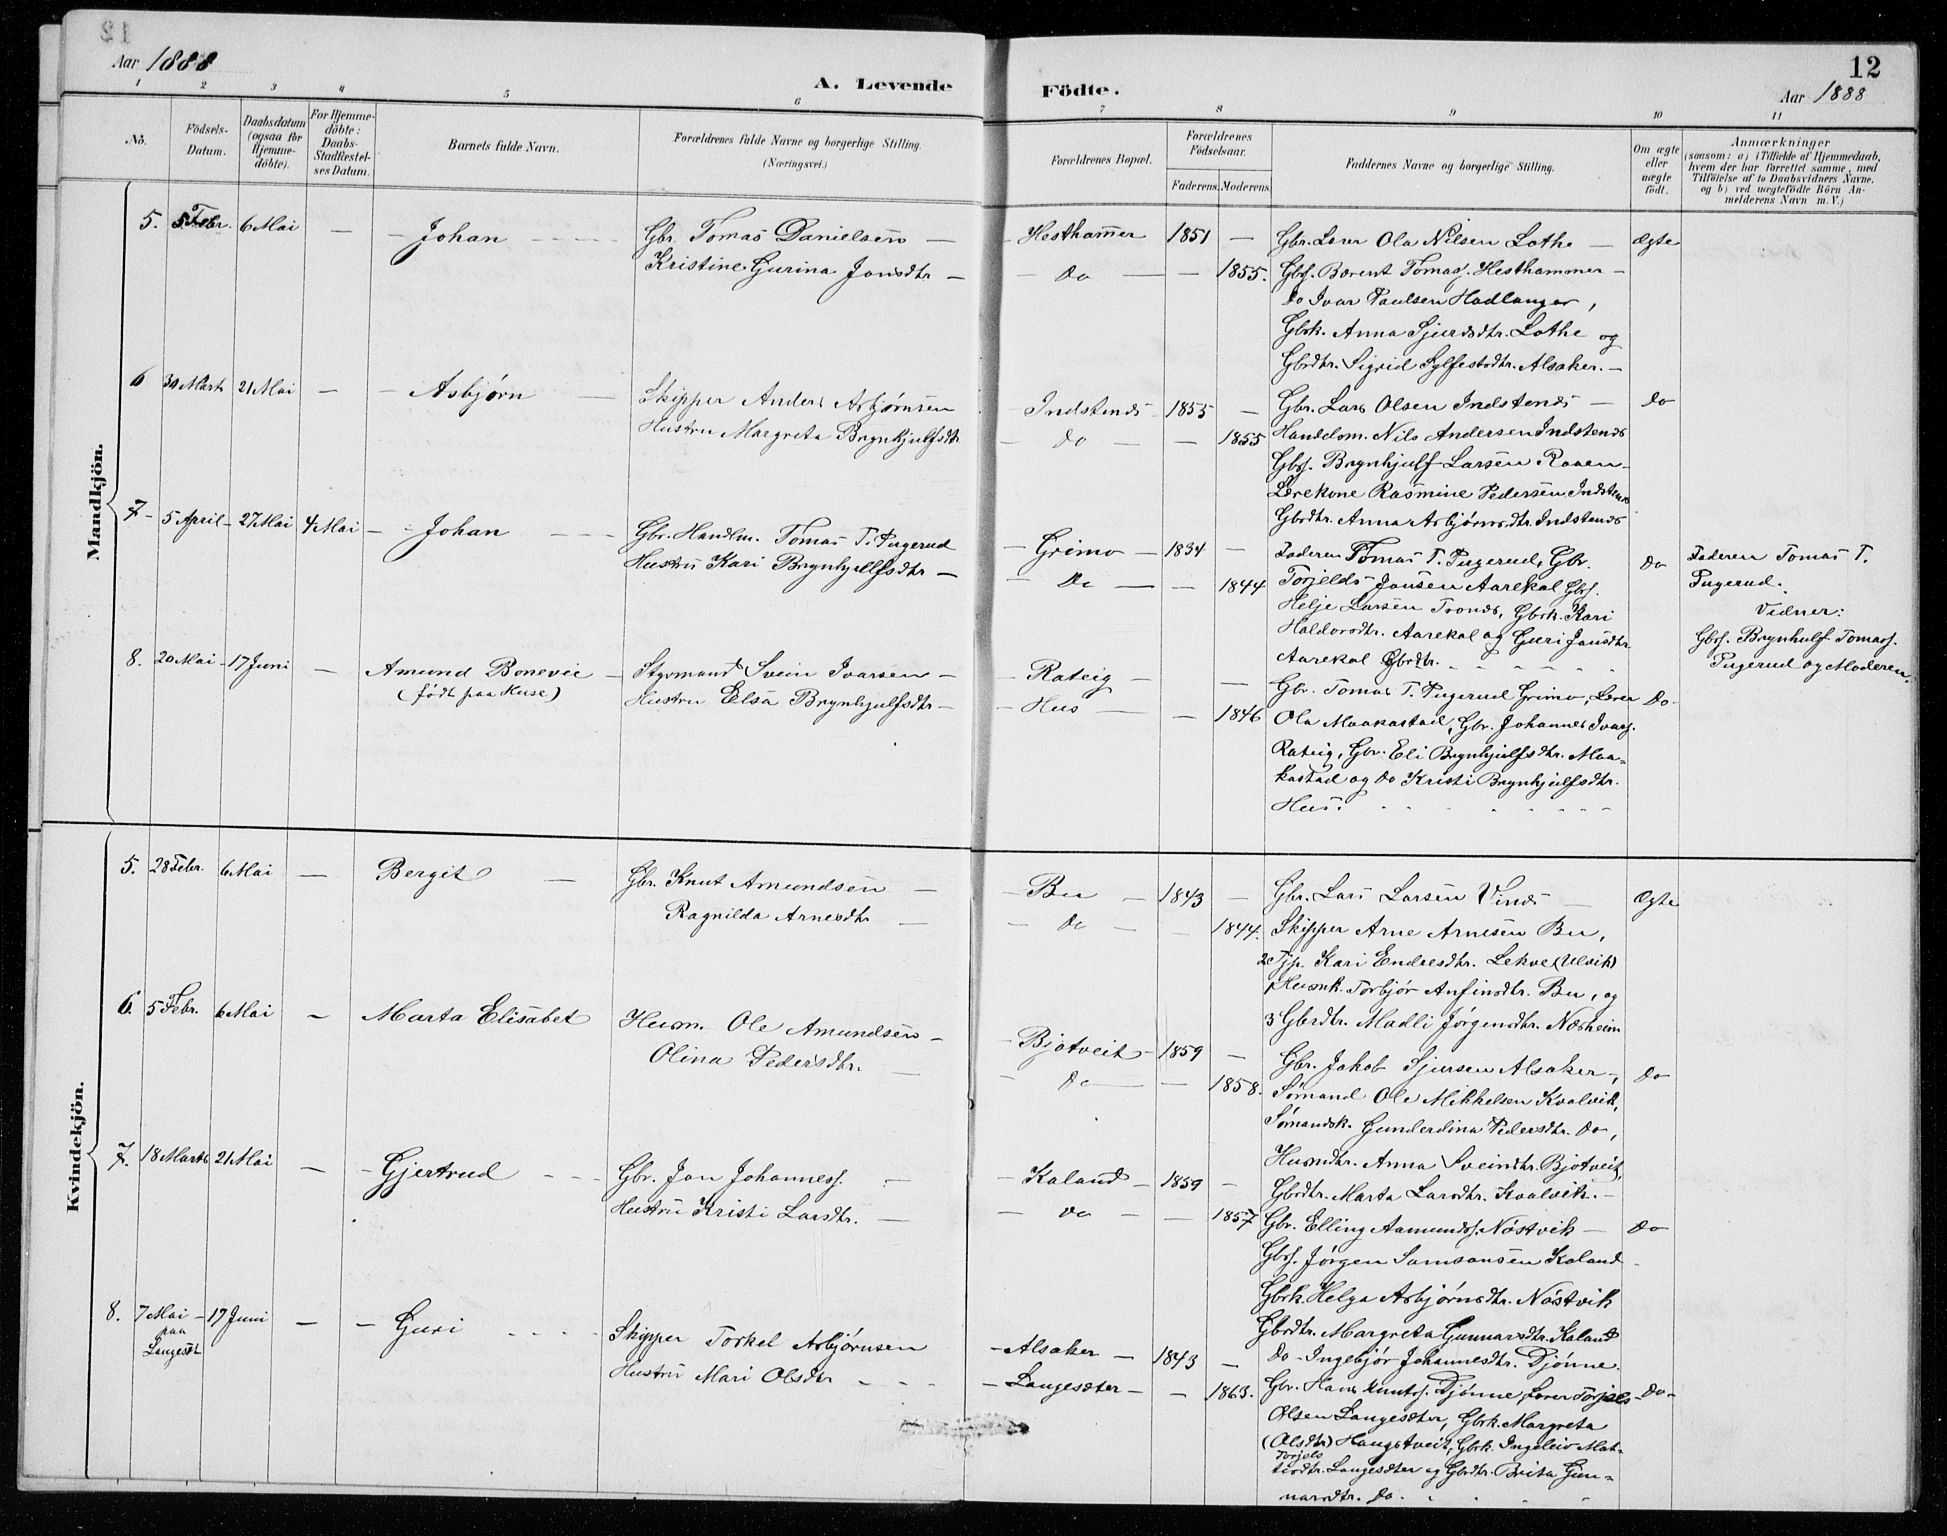 12
Aar 1888
A. Levende Födte.
12
Aar 1888
1 2 3 4 5 6 7 8 9 10 11
No.
Födsels-
Datum.
Daabsdatum
(ogsaa for
Hjemme-
döbte).
For Hjemme-
döbte:
Daabs-
Stadfæstel-
ses Datum.
Barnets fulde Navn.
Forældrenes fulde Navne og borgerlige Stilling.
(Næringsvei.)
Forældrenes Bopæl.
Forældrenes
Födselsaar.
Faderens. Moderens.
Faddernes Navne og borgerlige Stilling.
Om ægte
eller
uægte
födt.
Anmærkninger
(saasom: a) i Tilfælde af Hjemmedaab,
hvem der har forrettet samme, med
Tilföielse af to Daabsvidners Navne,
og b) ved uægtefödte Börn An-
melderens Navn m.V.)
Mandkjön.
5. 5 Febr. 6 Mai — Johan
Gbr. Tomas Danielsen —
Kristine Gurina Jonsdtr —
Hesthammer 1851 —
Do — 1855.
Gbr. Lærer Ola Nilsen Lothe — ægte
Gbs. Bærent Tomass. Hesthammer —
do Ivar Paulsen Hadlanger,
Gbrk. Anna Sjursdtr. Lothe og
Gbrdtr. Sigrid Sylfestsdtr. Alsaker. —
6 30 Marts 21 Mai — Asbjørn —
Skipper Anders Asbjørnsen
Hustru Margreta Brynhjulfsdtr
Indstends 1855 —
Do — 1855
Gbr. Lars Olsen Indstends — Do
Handelsm. Nils Andersen Indstends
Gbs. Brynhjulf Larsen Raaen
Lærekone Rasmine Pedersen Indstends
Gbrdtr. Anna Asbjørnsdtr. Indstends
7 - 5 April - 27 Mai 4 Mai - Johan
Gbr. Handlm. Tomas T. Pugerud
Hustru Kari Brynhjulfsdtr —
Grimo — 1834 —
Do — 1844
Faderen Tomas T. Pugerud, Gbr. Do
Torjelds Jonsen Aarekol Gbs.
Helje Larsen Tronæs, Gbrk. Kari
Haldorsdtr. Aarekol og Guri Jonsdtr
Aarekol Gbrdtr.
Faderen Tomas T.
Pugerud.
Vidner:
Gbs. Brynhulf Tomass.
Pugerud og Moderen.
8. 20 Mai - 17 Juni — Amund Bonevie —
(født paa Huse)
Styrmand Svein Ivarsen —
Hustru Elsa Brynhjulfsdtr —
Rateig —
Hus — 1846
Gbr. Tomas T. Pugerud Grimo, Lærer Do
Ola Maakastad, Gbr. Johannes Ivars.
Rateig, Gbr. Eli Brynhjulfsdtr. Maa-
kastad og do Kristi Brynhjulfsdtr.
Hus.
Kvindekjön.
5. 28 Febr. 6 Mai — Bergit —
Gbr. Knut Amundsen —
Ragnilda Arnesdtr —
Bu — 1843 —
Do — 1844.
Gbr. Lars Larsen Vinæs — Ægte
Skipper Arne Arnesen Bu,
2 Tjp. Kari Endresdtr. Lekve (Ulvik)
1 Husmk. Torbjør Anfinsdtr. Bu, og
3 Gbrdtr. Madli Jørgensdtr. Næsheim
6. 5 Febr. 6 Mai — Marta Elisabet
Husm. Ole Amundsen —
Olina Pedersdtr. —
Bjotveit — 1859 —
Do — 1858.
Gbr. Jakob Sjursen Alsaker —, Do
Sømand Ole Mikkelsen Kvalvik,
Sømandsk. Gunderdina Pedersdtr. Do,
Husmdtr. Anna Sveindtr. Bjotveit,
Gbrdtr. Marta Larsdtr. Kvalvik. —
7. 18 Marts 21 Mai — Gjertrud
Gbr. Jon Johanness. —
Hustru Kristi Larsdtr. —
Kaland — 1859 —
Do — 1857
Gbr. Elling Aamunds. Nøstvik — Do
Gbs. Jørgen Samsonsen Kaland
Gbrk. Helga Asbjørnsdtr. Nøstvik
Gbrdtr. Margreta Gunnarsdtr. Kaland
Do - Ingebjør Johannesdtr. Djønne.
8. 7 Mai — 17 Juni — Guri
paa
Langesæt
Skipper Torkel Asbjørnsen
Hustru Mari Olsdtr
Alsaker — 1843 —
Langesæter — 1863.
Gbr. Hans Knuts. Djønne, Lærer Torjels Do
Olsen Langesæter, Gbrk. Margreta
(Olsdtr) Haugstveit, Gbrk. Ingeleiv Mat-
Torjels
tiasdtr. Langesæter og Gbrdtr. Brita Gun-
narsdtr. do.